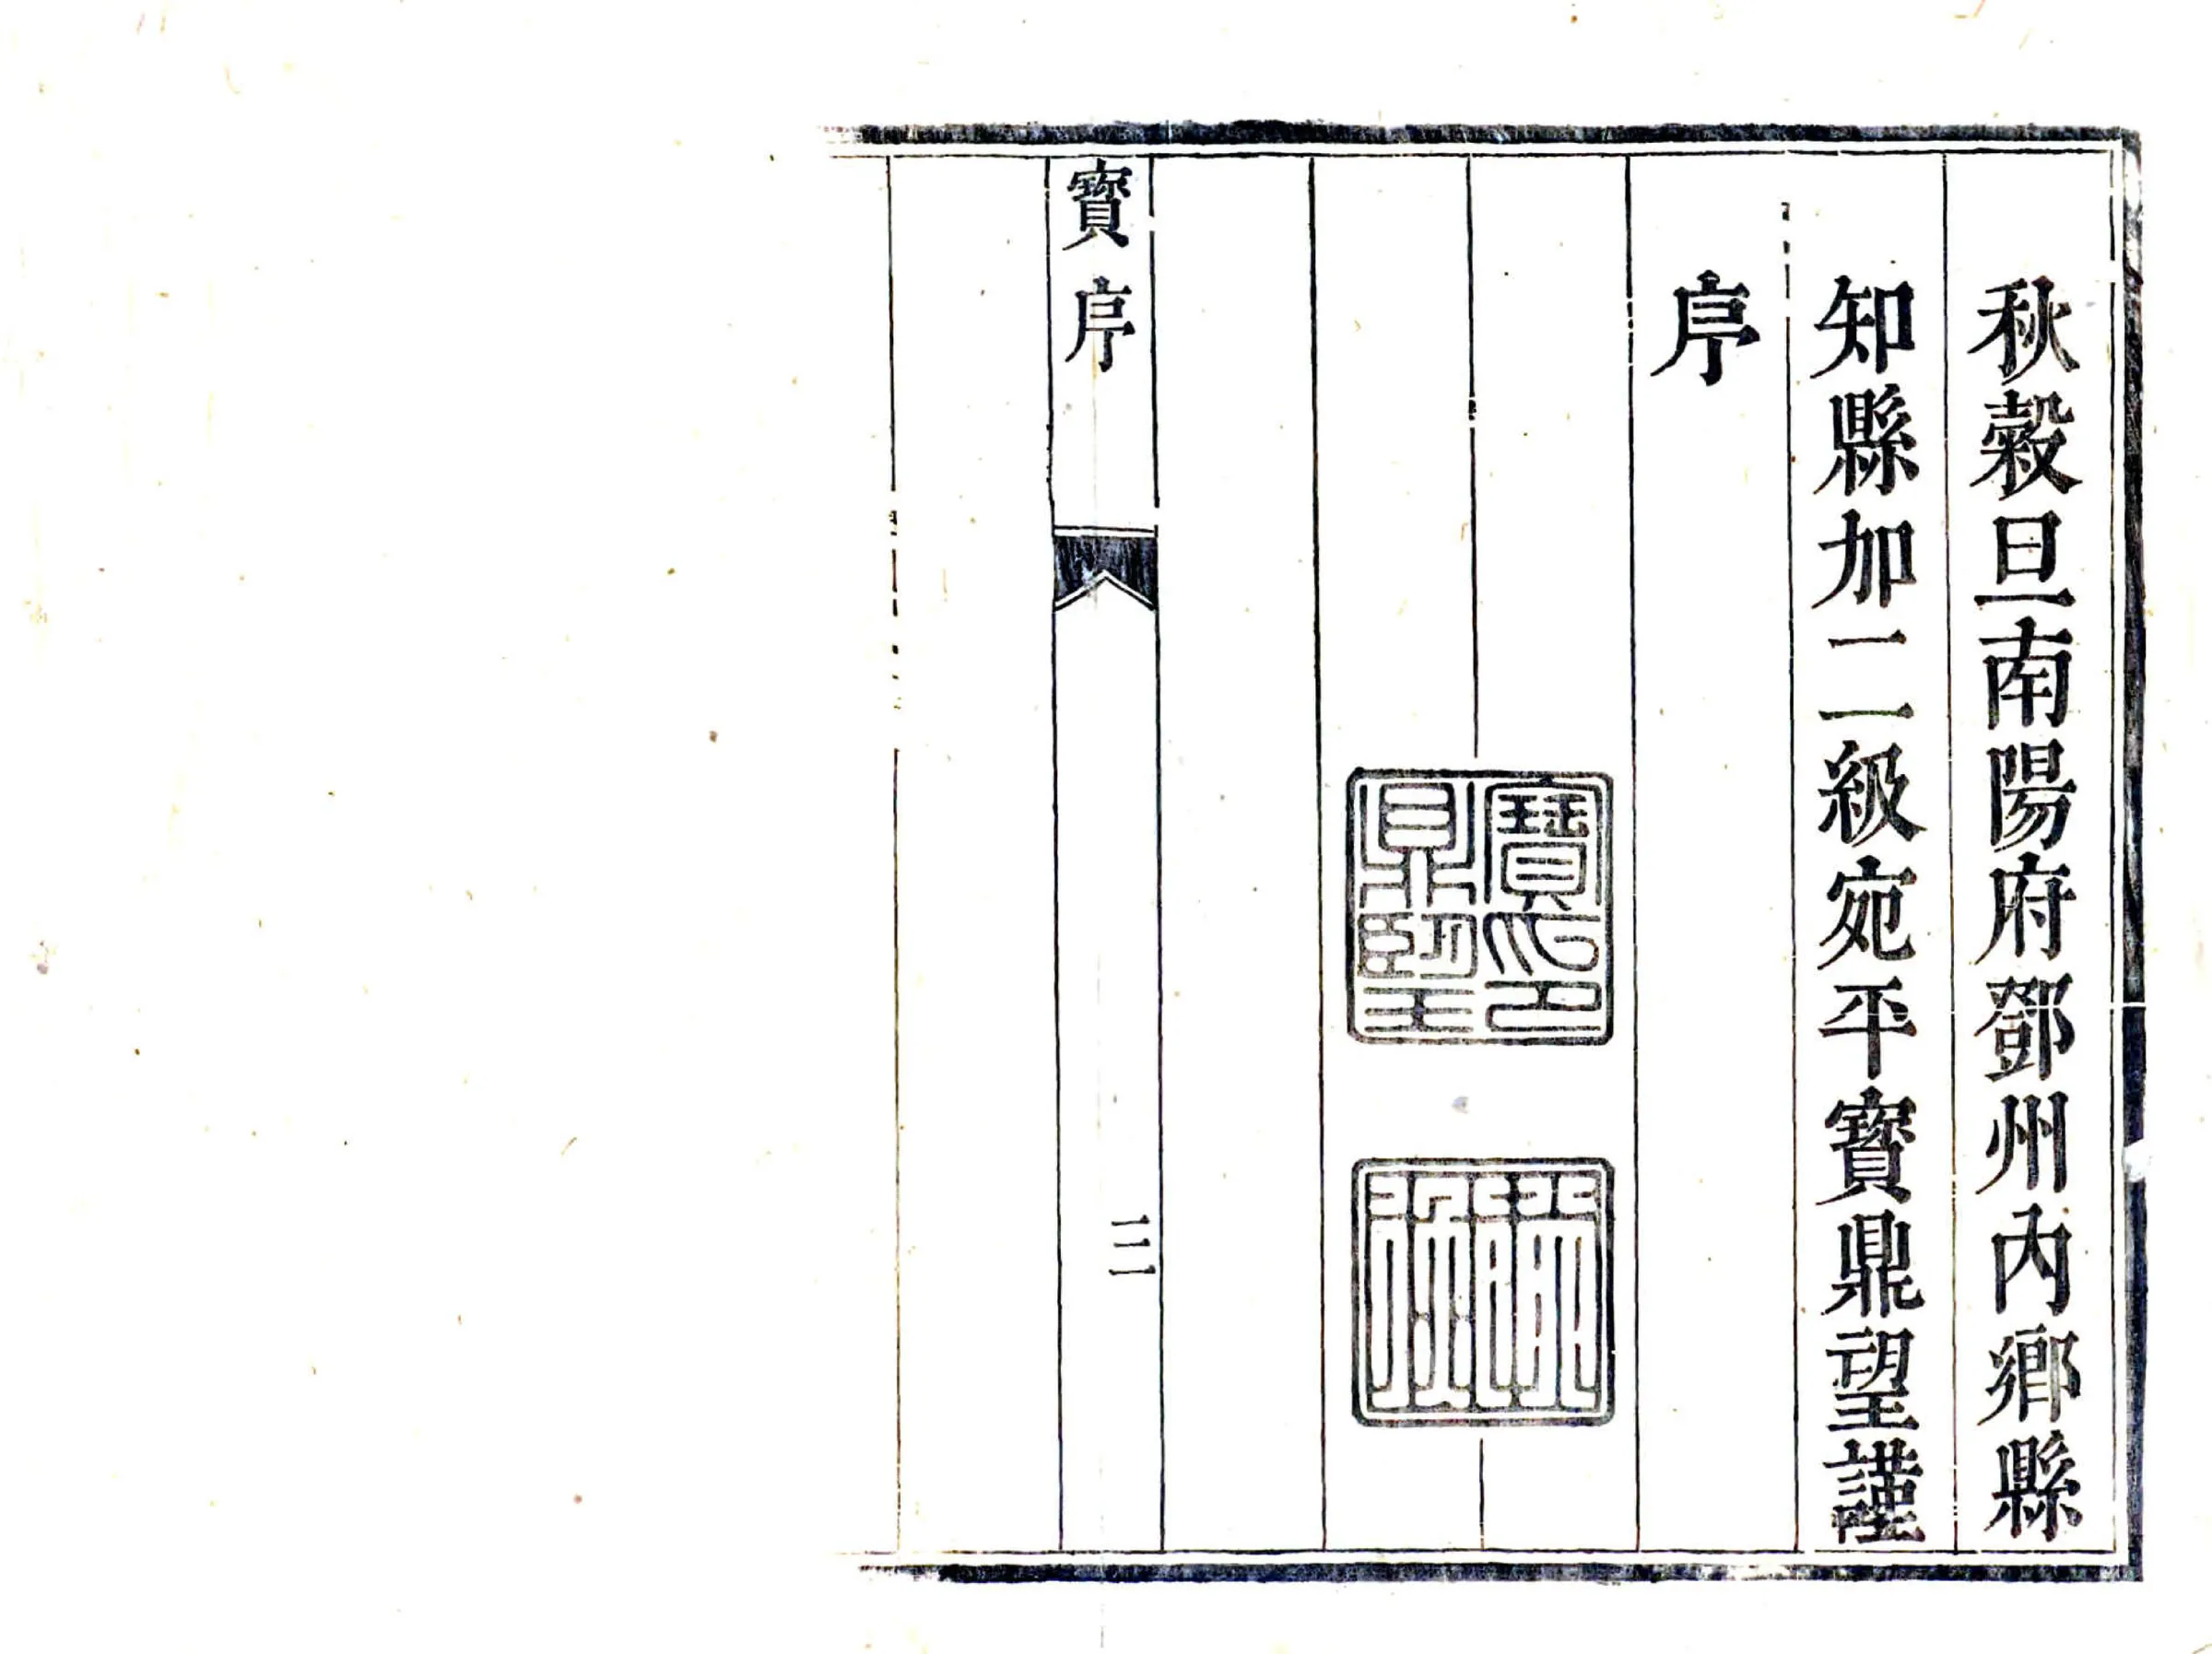 秋穀旦南陽府鄧州內鄉縣
知縣加二級宛平寶鼎望謹
序
寶印
鼎望
寶序
三